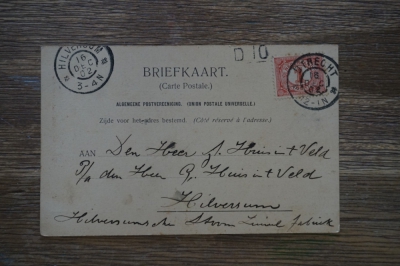 HILVERSUM
16 DEC 02
3-4N
D10
UTRECHT
16 DEC 02
12-1N
BRIEFKAART.
(Carte Postale.)
ALGEMEENE POSTVEREENIGING. (UNION POSTALE UNIVERSELLE.)
Zijde voor het adres bestemd. (Côté réservé à l'adresse.)
AAN Den Heer J. Huis in 't Veld
P/a den Heer R. Huis in 't Veld
Hilversum
Hilversumsche Stoom fabriek